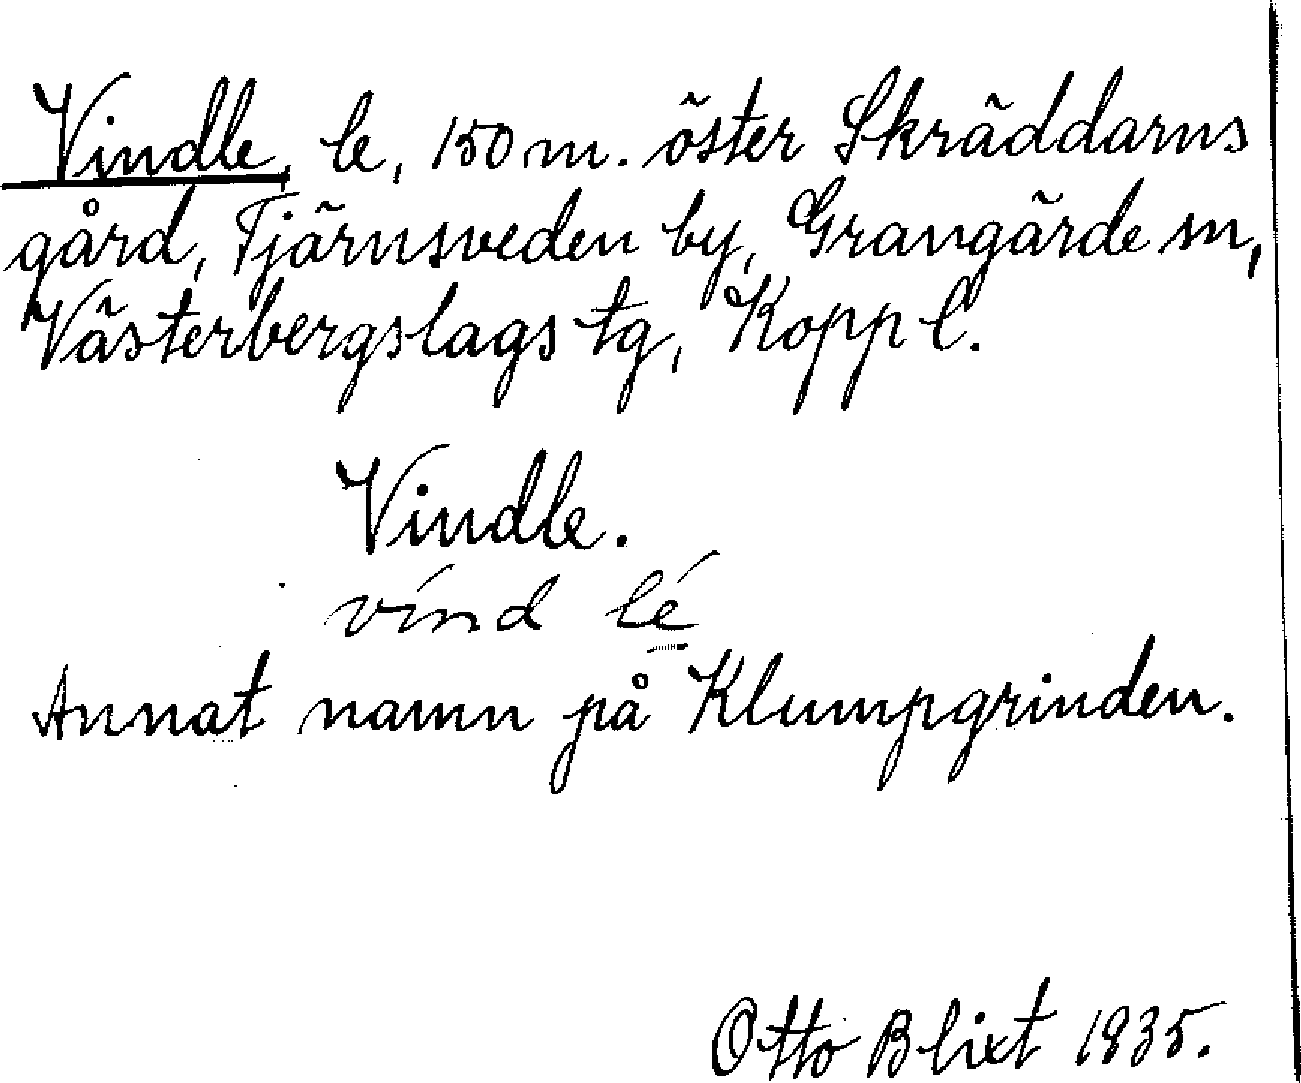 Vindle, le, 150 m. öster Skräddarns
gård, Tjärnsveden by, Grangärde sn,
Västerbergslags tg, Kopp l.
Vindle.
vínd lé
Annat namn på Klumpgrinden.
Otto Blixt 1935.